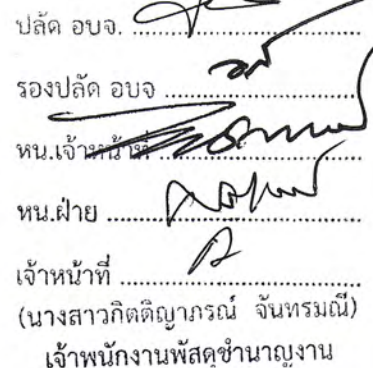 ปลัด อบจ. ..............................
รองปลัด อบจ ..............................
หน.เจ้าหน้าที่ ..............................
หน.ฝ่าย ..............................
เจ้าหน้าที่ ..............................
(นางสาวกิตติญาภรณ์ จันทรมณี)
เจ้าพนักงานพัสดุชำนาญงาน